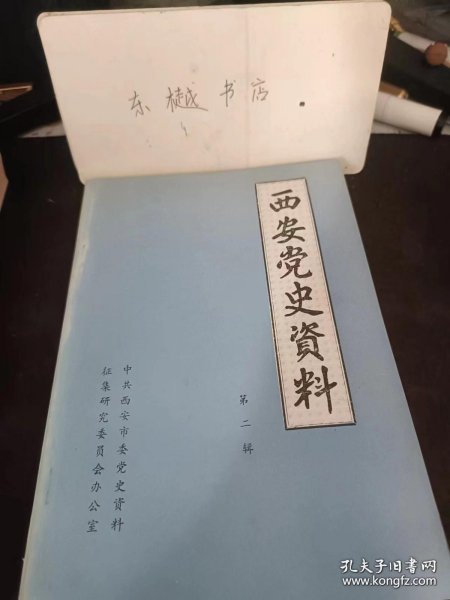 东樾书店
西安党史資料
第二辑
中共西安市委党史资料
征集研究委员会办公室
孔夫子旧书网
www.kongfz.com